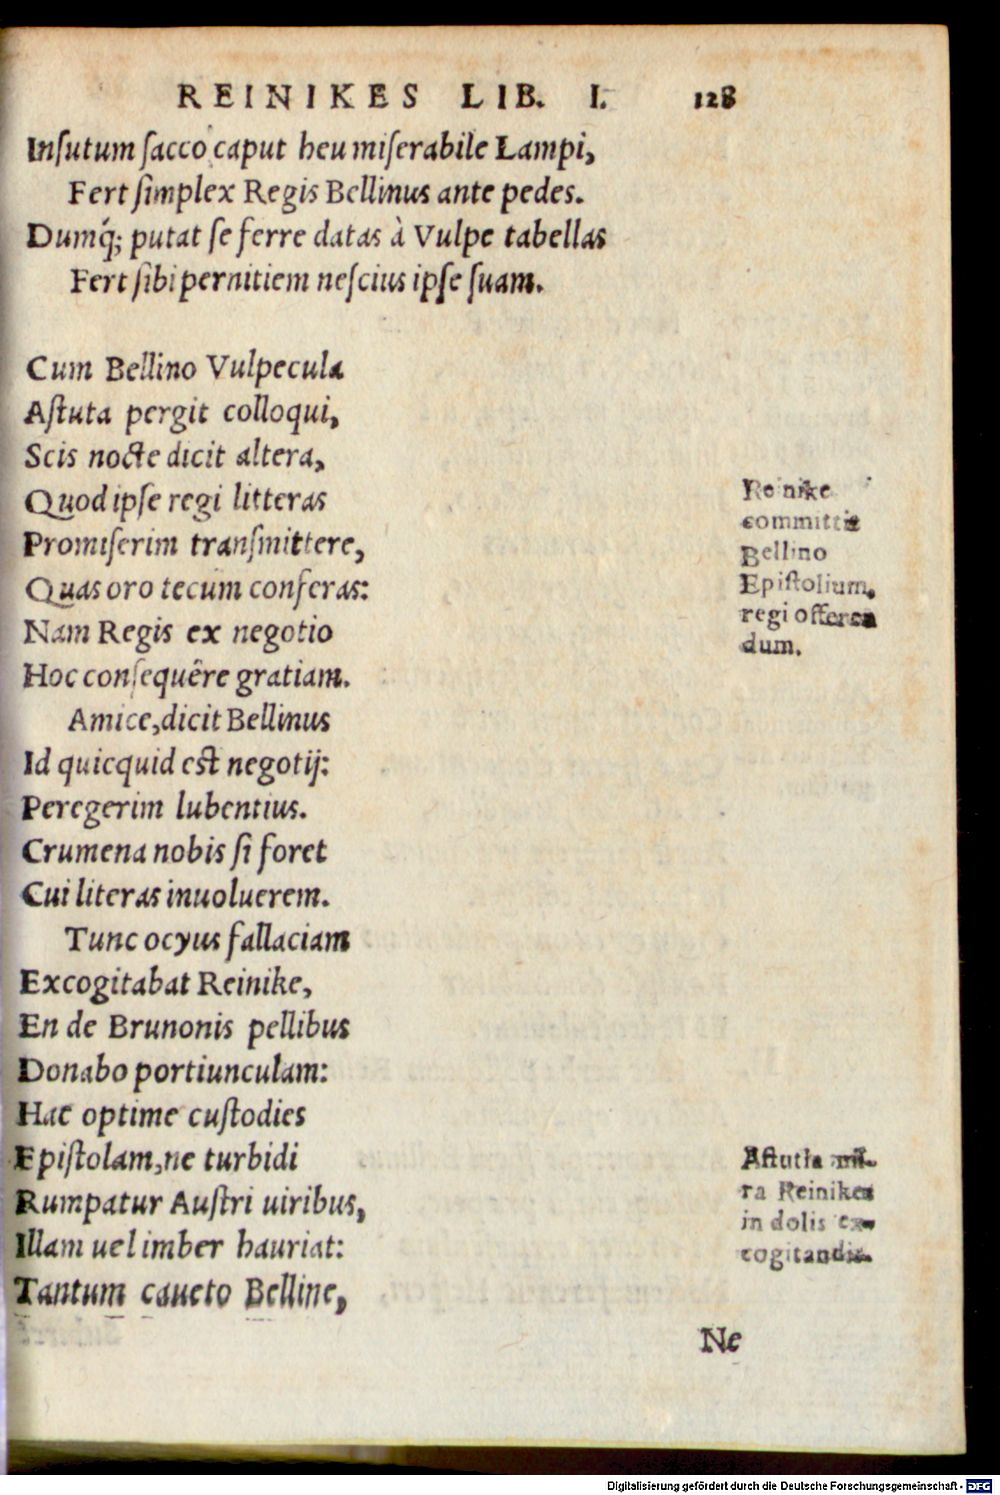 REINIKES LIB. I. 128
Inſutum ſacco caput heu miſerabile Lampi,
Fert ſimplex Regis Bellinus ante pedes.
Dumq́; putat ſe ferre datas à Vulpe tabellas
Fert ſibi pernitiem neſcius ipſe ſuam.
Cum Bellino Vulpecula
Aſtuta pergit colloqui,
Scis nocte dicit altera,
Quod ipſe regi litteras
Promiſerim tranſmittere,
Quas oro tecum conferas:
Nam Regis ex negotio
Hoc conſequêre gratiam.
Amice, dicit Bellinus
Id quicquid eſt negotij:
Peregerim lubentius.
Crumena nobis ſi foret
Cui literas inuoluerem.
Tunc ocyus fallaciam
Excogitabat Reinike,
En de Brunonis pellibus
Donabo portiunculam:
Hac optime cuſtodies
Epiſtolam, ne turbidi
Rumpatur Auſtri uiribus,
Illam uel imber hauriat:
Tantum caueto Belline,
Reinike
committit
Bellino
Epiſtolium,
regi offeren
dum.
Aſtutia mi-
ra Reinikes
in dolis ex-
cogitandis.
Ne
Digitalisierung gefördert durch die Deutsche Forschungsgemeinschaft - DFG